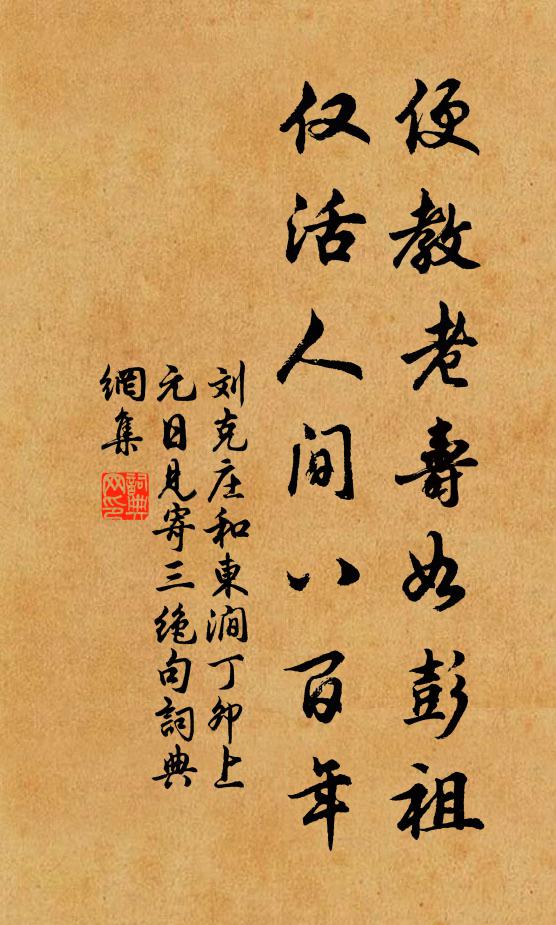 便教老壽如彭祖
仅活人间八百年
刘克庄和東澗丁卯上
元日見寄三绝句詞典
網集
詞典网印